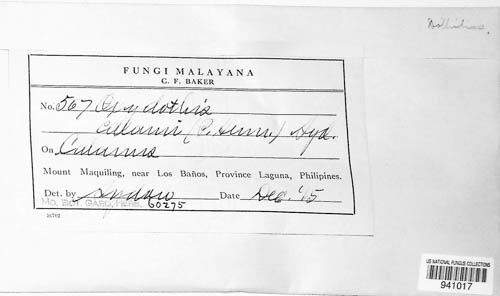 FUNGI MALAYANA
C. F. BAKER
No. 567 Oxydothis
(P. Henn.) Syd.
On
Mount Maquiling, near Los Baños, Province Laguna, Philipines.
Det. by Sydow Date Dec. '15
MO. BOT. GARD. HERB. 60275
US NATIONAL FUNGUS COLLECTIONS
941017